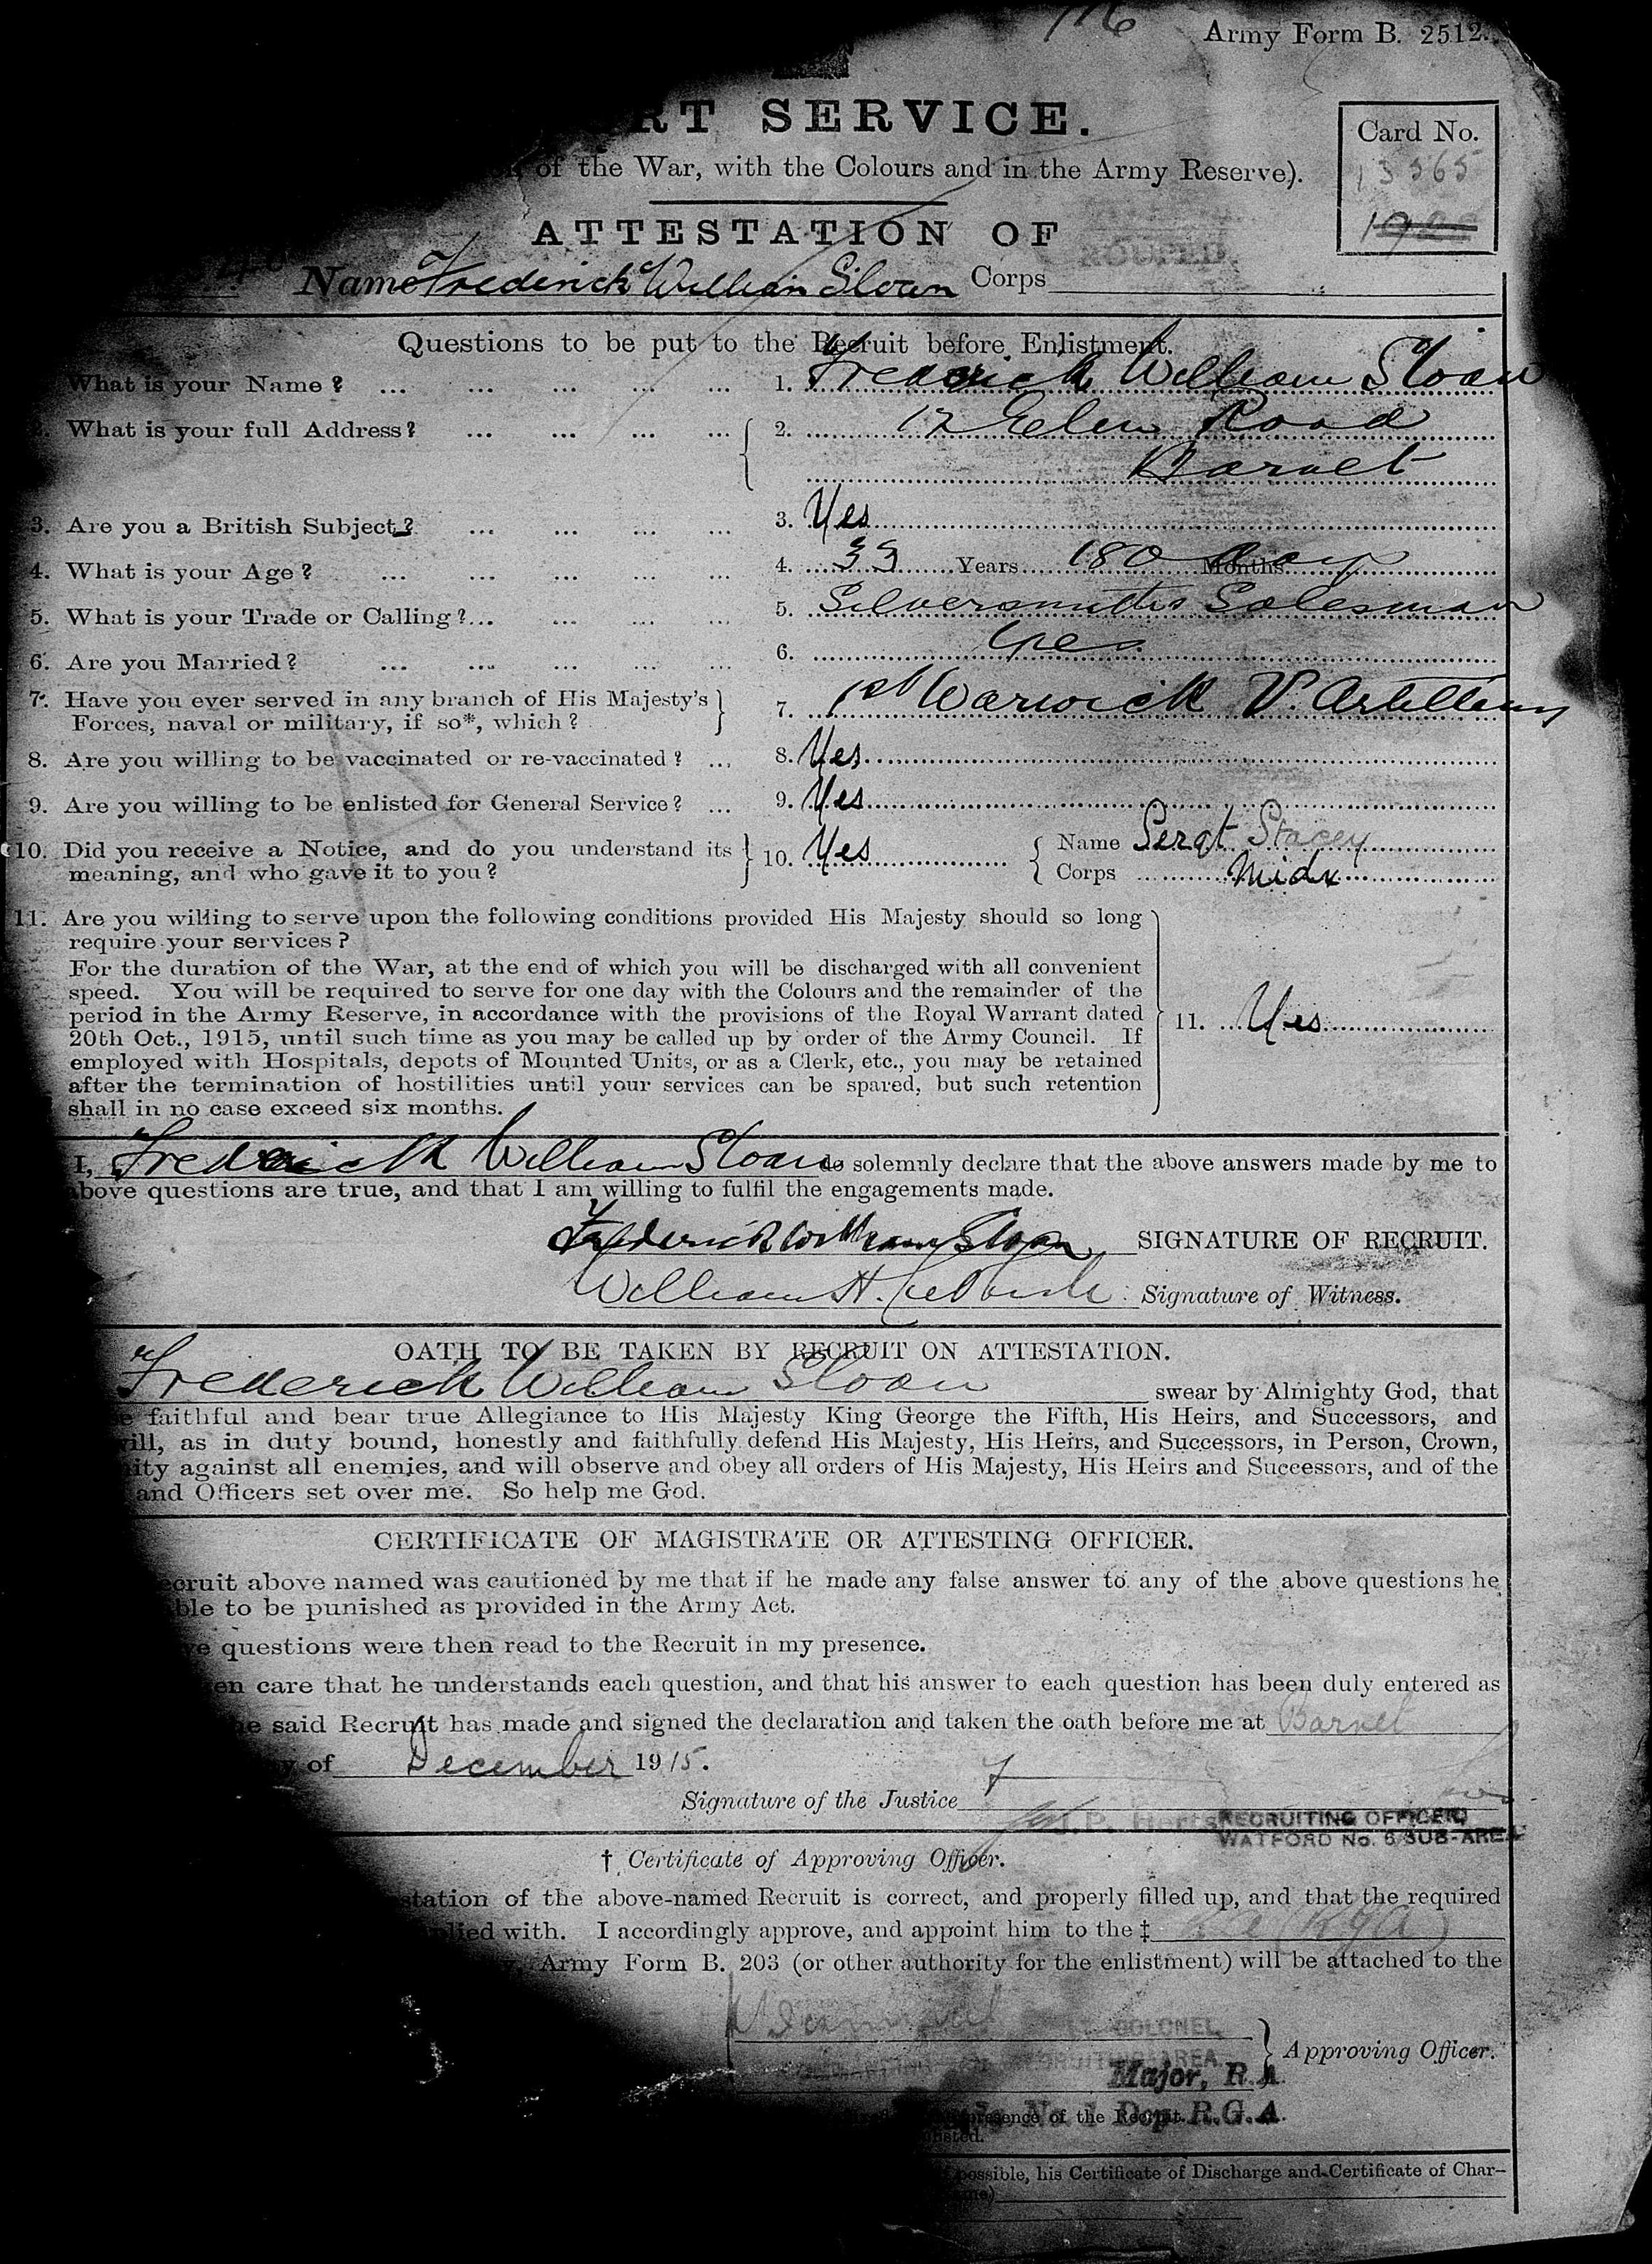 Army Form B. 2512.
RT SERVICE.
of the War, with the Colours and in the Army Reserve).
Card No.
13365
ATTESTATION OF
Name Frederick William Sloan Corps
Questions to be put to the Recruit before Enlistment.
What is your Name? ... ... ... ... ... 1. Frederick William Sloan
2. What is your full Address? ... ... ... ... 2. 12 Road
Barnet
3. Are you a British Subject? ... ... ... ... 3. Yes
4. What is your Age? ... ... ... ... ... 4. 33 Years 180 Months
5. What is your Trade or Calling?... ... ... ... 5. Silversmiths Salesman
6. Are you Married? ... ... ... ... ... 6. Yes
7. Have you ever served in any branch of His Majesty's
Forces, naval or military, if so*, which? 7. 1st Warwick V. Artillery
8. Are you willing to be vaccinated or re-vaccinated? ... 8. Yes
9. Are you willing to be enlisted for General Service? ... 9. Yes
10. Did you receive a Notice, and do you understand its
meaning, and who gave it to you? 10. Yes Name Sergt Stacey
Corps Midx
11. Are you willing to serve upon the following conditions provided His Majesty should so long
require your services?
For the duration of the War, at the end of which you will be discharged with all convenient
speed. You will be required to serve for one day with the Colours and the remainder of the
period in the Army Reserve, in accordance with the provisions of the Royal Warrant dated
20th Oct., 1915, until such time as you may be called up by order of the Army Council. If
employed with Hospitals, depots of Mounted Units, or as a Clerk, etc., you may be retained
after the termination of hostilities until your services can be spared, but such retention
shall in no case exceed six months.
11. Yes
I, Frederick William Sloan do solemnly declare that the above answers made by me to
above questions are true, and that I am willing to fulfil the engagements made.
Frederick William Sloan SIGNATURE OF RECRUIT.
William H. Signature of Witness.
OATH TO BE TAKEN BY RECRUIT ON ATTESTATION.
Frederick William Sloan swear by Almighty God, that
faithful and bear true Allegiance to His Majesty King George the Fifth, His Heirs, and Successors, and
will, as in duty bound, honestly and faithfully defend His Majesty, His Heirs, and Successors, in Person, Crown,
ity against all enemies, and will observe and obey all orders of His Majesty, His Heirs and Successors, and of the
and Officers set over me. So help me God.
CERTIFICATE OF MAGISTRATE OR ATTESTING OFFICER.
ecruit above named was cautioned by me that if he made any false answer to any of the above questions he
ble to be punished as provided in the Army Act.
ve questions were then read to the Recruit in my presence.
en care that he understands each question, and that his answer to each question has been duly entered as
he said Recruit has made and signed the declaration and taken the oath before me at Barnet
y of December 1915.
Signature of the Justice
J.P. Herts
RECRUITING OFFICER
WATFORD No. 6 SUB-AREA
† Certificate of Approving Officer.
station of the above-named Recruit is correct, and properly filled up, and that the required
plied with. I accordingly approve, and appoint him to the ‡ RGA
Army Form B. 203 (or other authority for the enlistment) will be attached to the
LT. COLONEL
RECRUITING AREA
Approving Officer.
Major, R.A.
No. 1 Dep. R.G.A.
presence of the Recruit.
listed.
possible, his Certificate of Discharge and Certificate of Char-